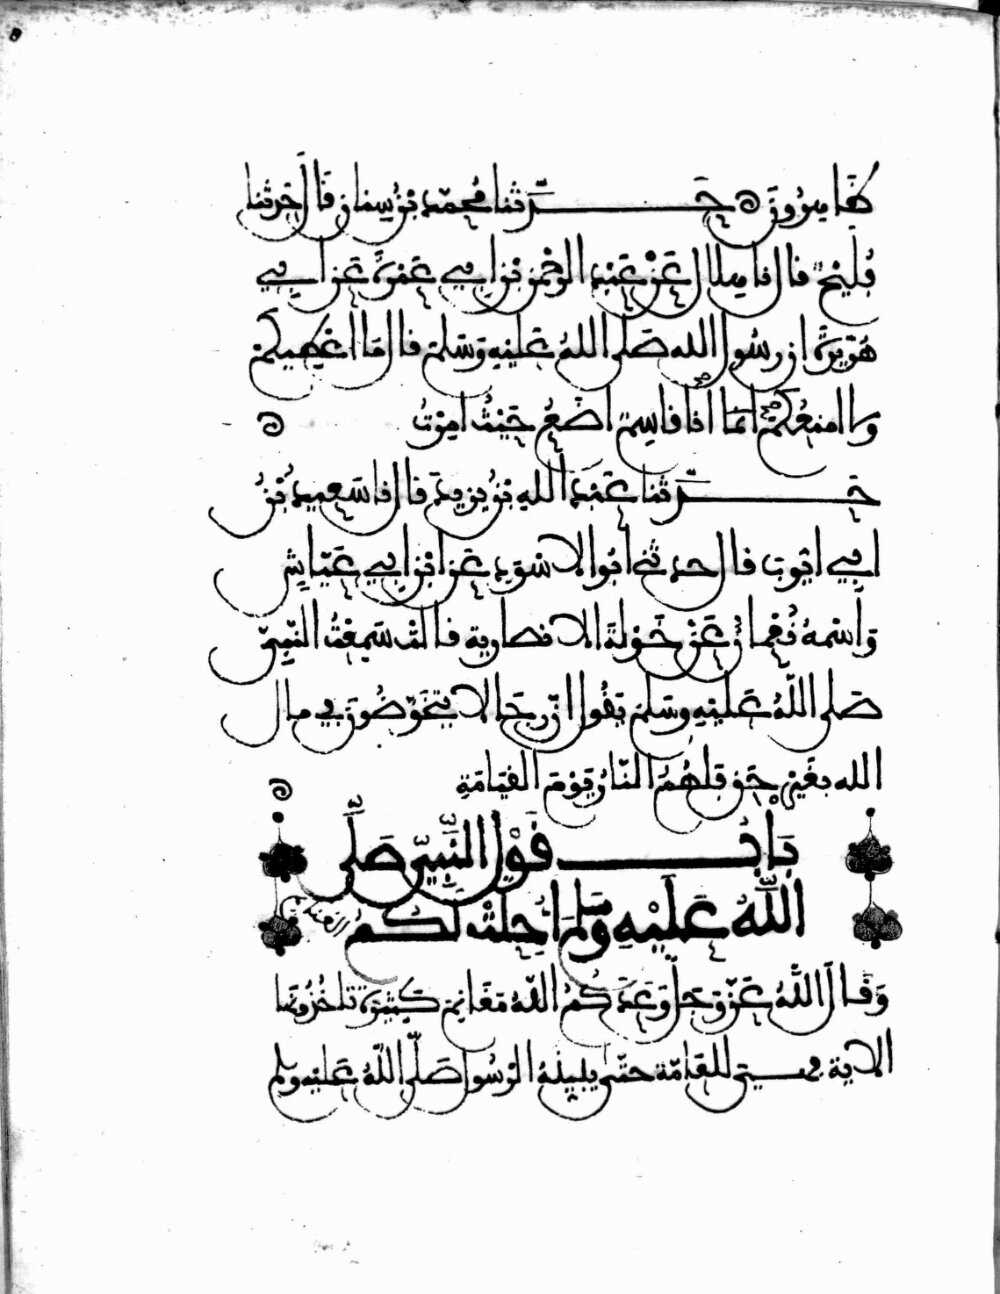 ظَاهِرُونَ حَدَّثنا محمد بنُ سِنَان قَالَ حَدثنا
فُلَيْحٌ قال نا هِلال عَنْ عَبْدِ الرحمن بْن أبِي عَمْرَةَ عَن أبِي
هُرَيرَةَ ان رسُول الله صَلى اللهُ عَلَيْهِ وَسَلم قال مَا اعْطِيكُمْ
وَلا امنَعُكُمْ انمَا انا قاسِمٌ اضَعُ حَيْثُ امِرْتُ
حَدَّثنا عَبْدُ اللهِ بْنُ يزيدَ قال نا سَعِيدُ بْنُ
ابِي ايُّوبَ قال حدثني أبُو الاسْوَدِ عَن ابْنِ ابِي عَيّاشٍ
وَاسْمهُ نُعْمانُ عَنْ خَوْلَةَ الانصاريةِ قالتْ سَمِعْتُ النّبِيّ
صَلى اللهُ عَلَيْهِ وسَلم يَقُول انّ رِجَالا يتخَوّضُونَ في مال
الله بغَيْرِ حَق فلهُمُ النّارُ يَوْمَ القيَامَةِ
بَابُ قَوْلِ النَّبِيِّ صَلَّى
اللَّهُ عَلَيْهِ وَسَلَّمَ أُحِلتْ لَكُمُ الغنائم
وَقَالَ اللهُ عَزّ وَجَلّ وَعَدَكُمُ اللهُ مَغَانِمَ كَثِيرَةً تاخُذُونَهَا
الاية فهي للعَامّة حتى يبينهُ الرّسُول صَلّى اللهُ عَلَيْه وسلم